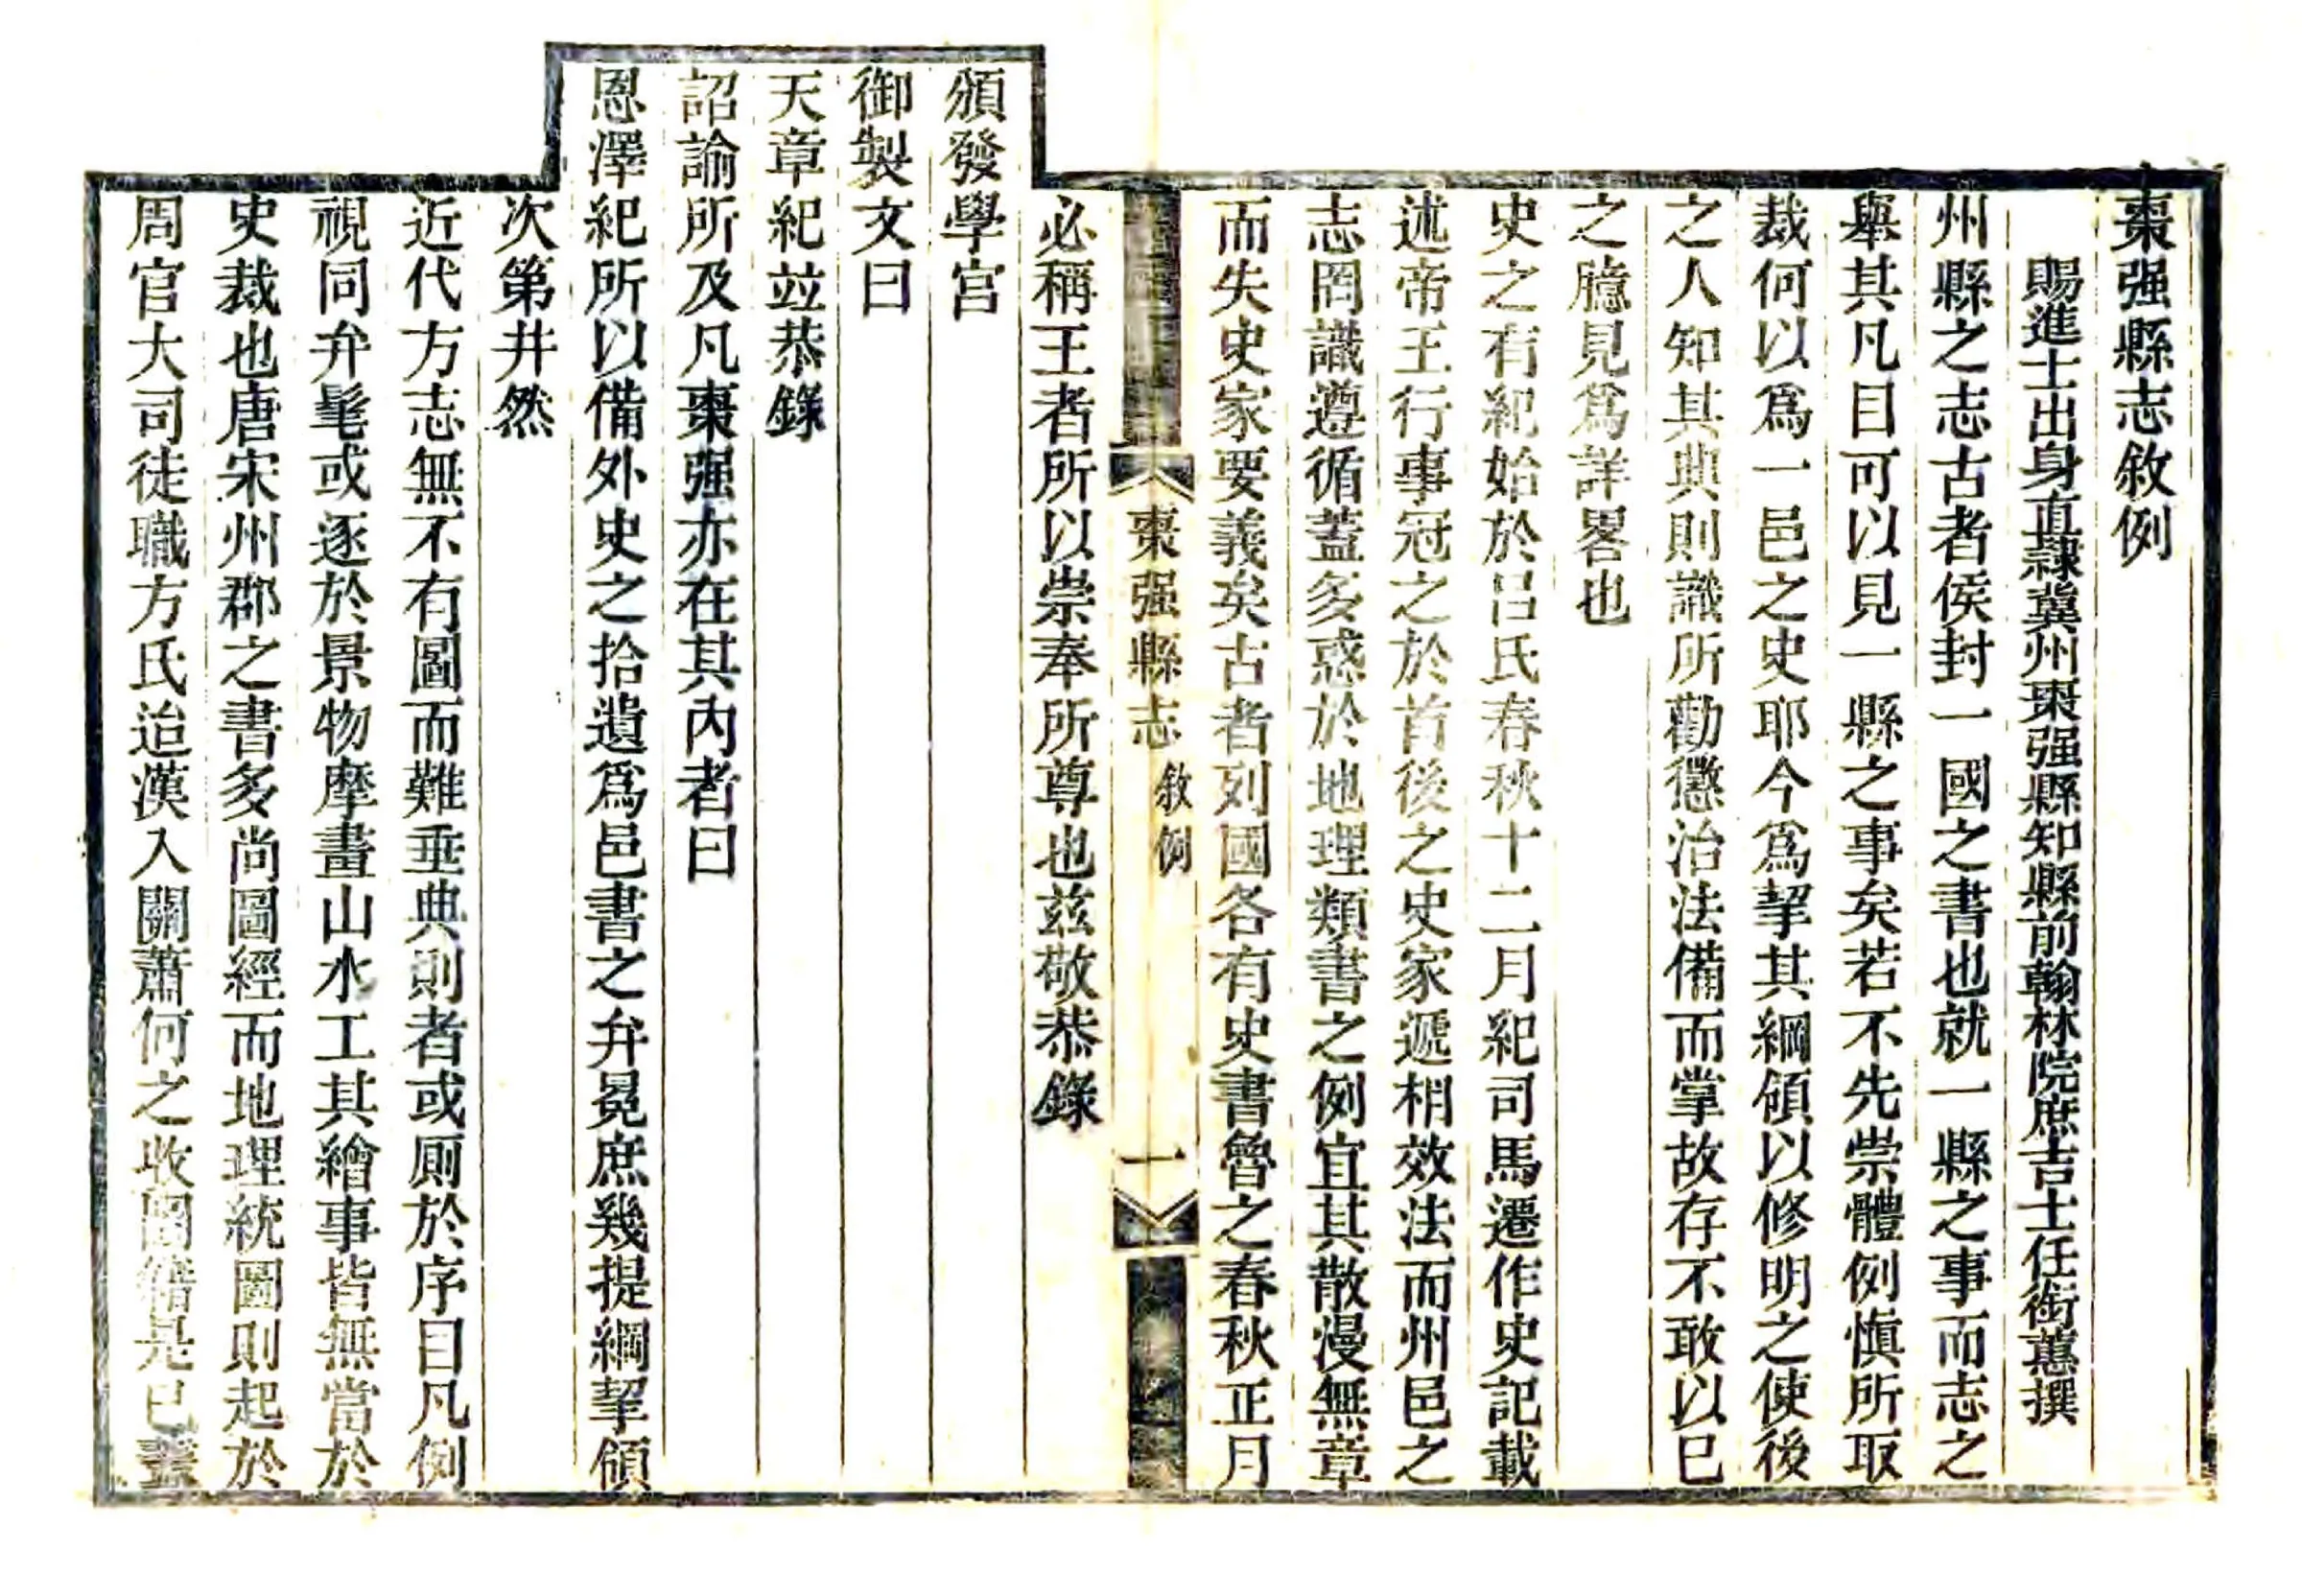 棗强縣志敘例
賜進士出身直隸冀州棗强縣知縣前翰林院庶吉士任銜蕙撰
州縣之志古者侯封一國之書也就一縣之事而志之
舉其凡目可以見一縣之事矣若不先崇體例愼所取
裁何以爲一邑之史耶今爲挈其綱領以修明之使後
之人知其典則識所勸懲治法備而掌故存不敢以已
之臆見爲詳畧也
史之有紀始於呂氏春秋十二月紀司馬遷作史記載
述帝王行事冠之於首後之史家遞相效法而州邑之
志罔識遵循蓋多惑於地理類書之例宜其散漫無章
而失史家要義矣古者列國各有史書魯之春秋正月
棗强縣志 敘例 一
必稱王者所以崇奉所尊也兹敬恭錄
頒發學宮
御製文曰
天章紀竝恭錄
詔諭所及凡棗强亦在其內者曰
恩澤紀所以備外史之拾遺爲邑書之弁冕庶幾提綱挈領
次第井然
近代方志無不有圖而難垂典則者或厕於序目凡例
視同弁髦或逐於景物摩畫山水工其繪事皆無當於
史裁也唐宋州郡之書多尚圖經而地理統圖則起於
周官大司徒職方氏迨漢入關蕭何之收圖籍是已蓋